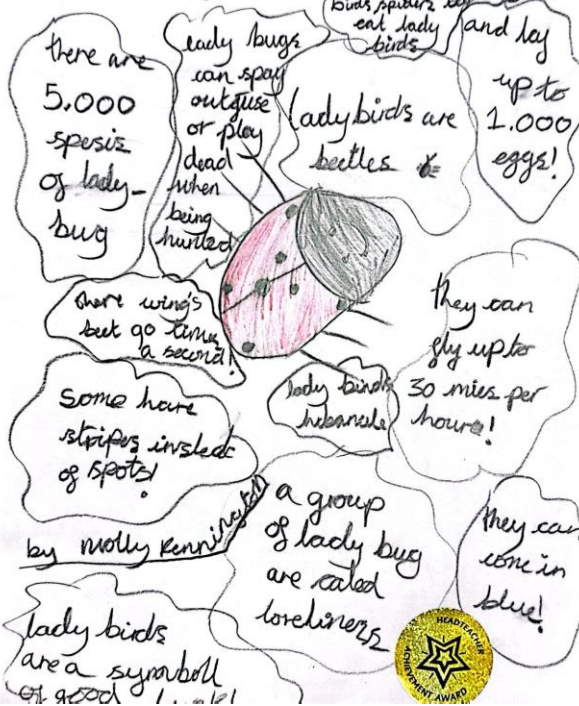 there are
5.000
spesis
of lady-
bug
lady bugs
can spay
out
or play
dead
when
being
hunted
birds spiders
eat lady
birds
and lay
up to
1.000
eggs!
Lady birds are
beetles
there wings
beet 90 times
a second!
they can
fly up to
30 miles per
houre!
lady binds
hibanale
Some have
stripes insted
of spots!
by Molly Rennington
a group
of lady bug
are caled
loveliness
they can
come in
blue!
lady birds
are a symboll
of good luck!
HEADTEACHER
ACHIEVEMENT AWARD